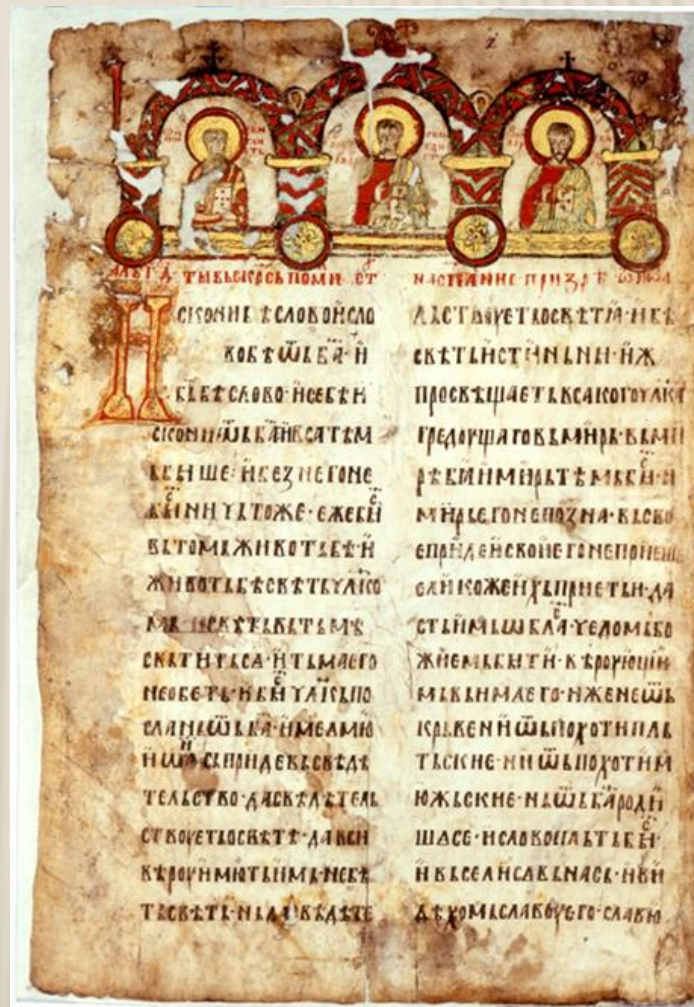 искониБѣсловоисло
вобѣѿьба·и
бьбѣслово·исебѣи
скониѿьба҃ивсатѣм
ьбыше·ибезнегоне
быⷭничьтоже·ежебыⷭ
вьтомьживотьбѣ·и
животьбѣсвѣтьчл҃ко
мь·исвѣтьвьтьмѣ
свьтитьса·итьмаего
необеть·ибыⷭчл҃кьпо
сланьѿьба҃·имеамю
сьпридевьсвѣдѣ
тельство·дасвѣдѣтель
ствоуетьосвѣтѣ·давси
вѣроуимютьимь·небѣ
тьсвѣть·ньдасвѣдѣте
льствоуетьосвѣтѣ·ибѣ
свѣтьистиньни·иж
просвѣщаетьвсакогочл҃ка
гредоущаговьмирь·вьми
рѣбѣимирьтѣмьбыⷭ·и
мирьегонепозна·вьсво
еприде·исвоиегонепоиеше
еликожеихьприеть·и·да
стьимьѡбла·чедомьбо
жиемьбыти·вѣроующи
мьвьимаего·иженеѿь
крьвени·иѿьпохотипль
тьские·ниѿьпохотим
южьские·ньѿьба҃роди
шасе·исловопльтьбыⷭ·
ивьселисавьнась·иви
дѣхомьславоуего·славю